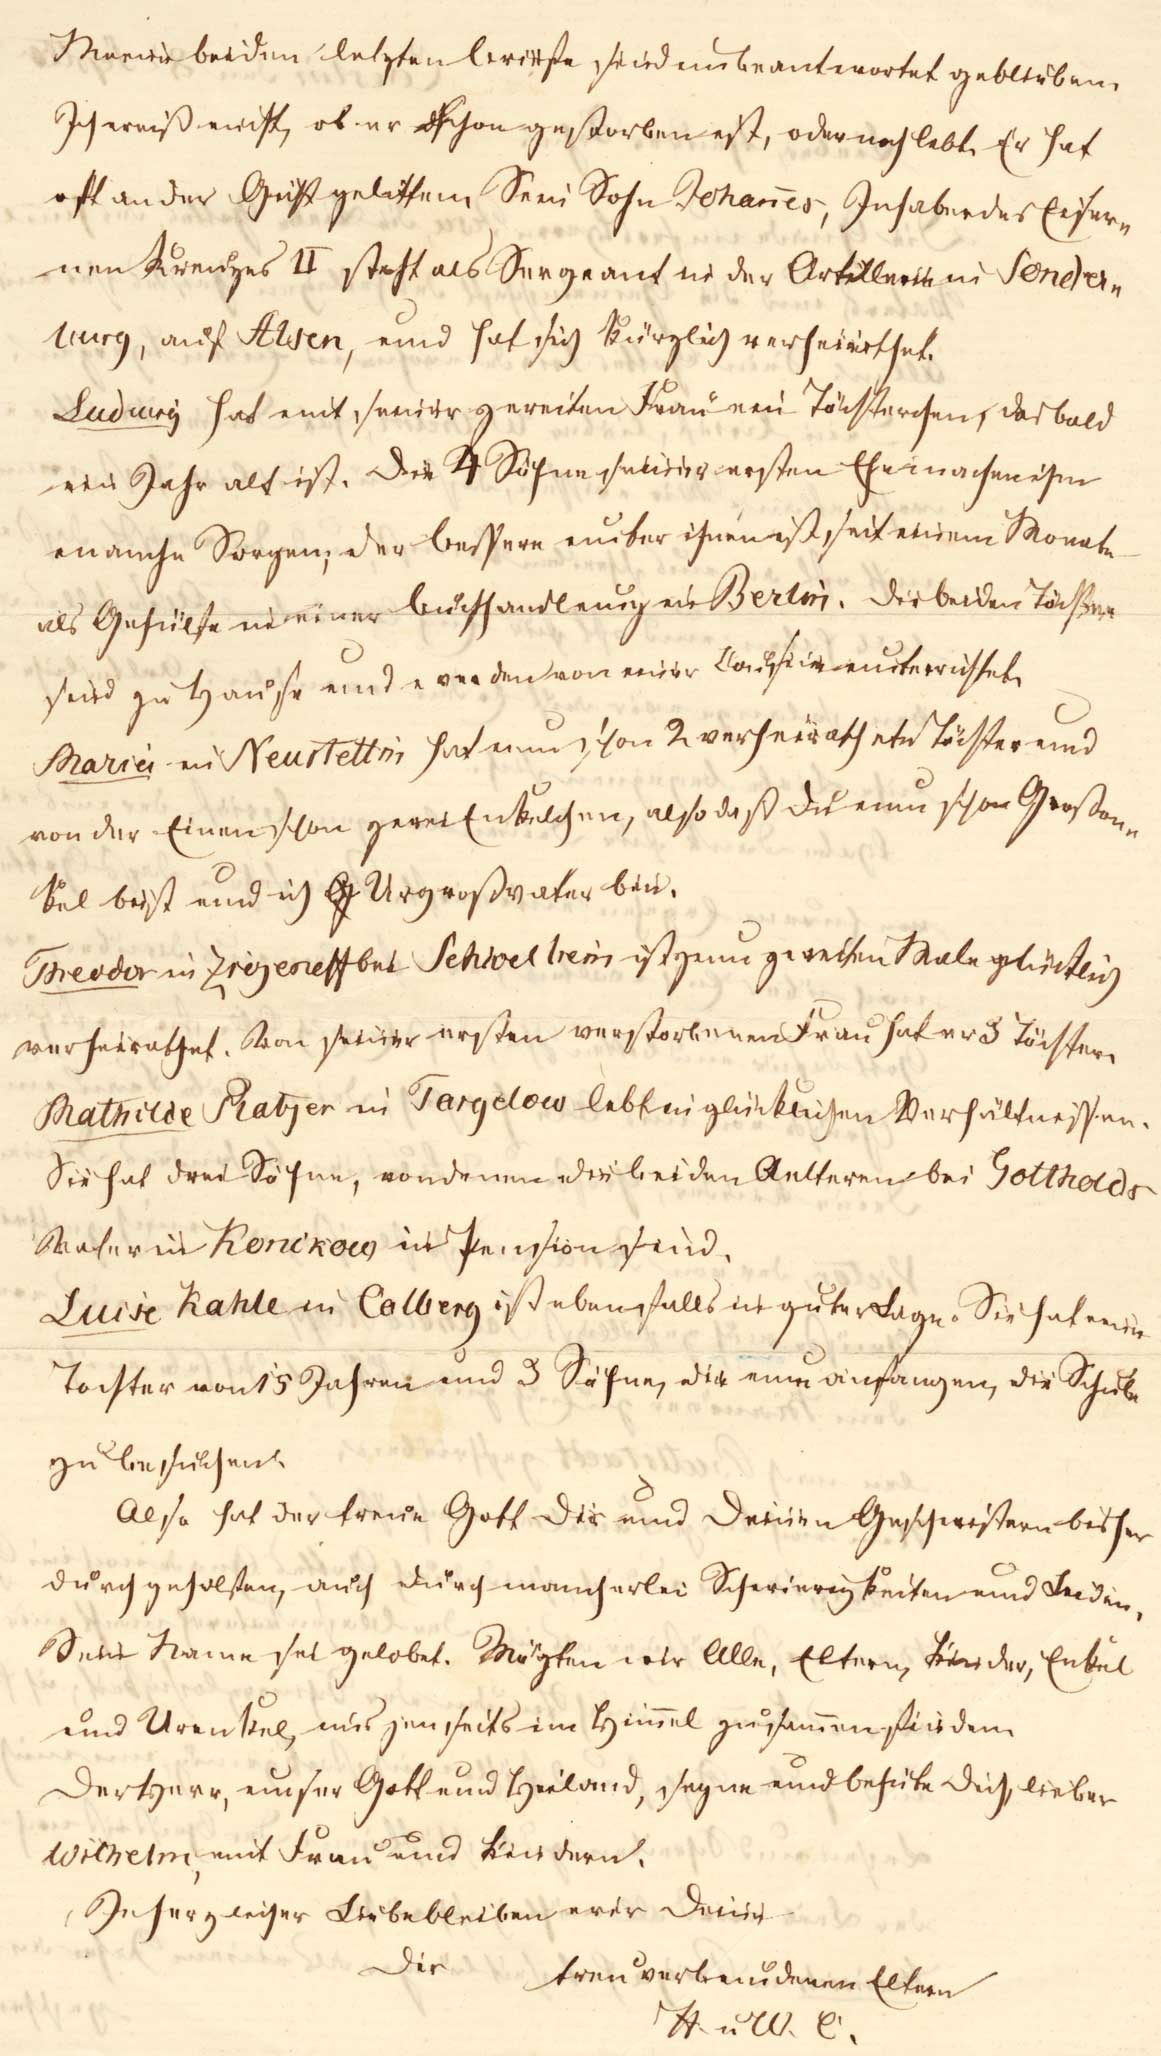 Meine beiden letzten Briefe sind unbeantwortet geblieben.
Ich weiß nicht, ob er schon gestorben ist, oder noch lebt. Er hat
oft an der Gicht gelitten. Sein Sohn Johannes, Inhaber des Eiser=
nen Kreuzes II steht als Sergeant in der Artillerie in Sonder=
burg, auf Alsen, und hat sich kürzlich verheirathet.
Ludwig hat mit seiner zweiten Frau ein Töchterchen, das bald
ein Jahr alt ist. Die 4 Söhne seiner ersten Ehe machen ihm
manche Sorgen; der bessere unter ihnen ist seit einem Monate
als Gehülfe in einer Buchhandlung in Berlin. Die beiden Töchter
sind zu Hause und werden von einer Cousine unterrichtet.
Maria in Neustettin hat nun schon 2 verheirathete Töchter und
von der Einen schon zwei Enkelchen, also daß Du nun schon Großon=
kel bist und ich Urgroßvater bin.
Theodor in Ziezeneff bei Schivelbein ist zum zweiten Male glücklich
verheirathet. Von seiner ersten verstorbenen Frau hat er 3 Töchter.
Mathilde Ratzer in Targelow lebt in glücklichen Verhältnissen.
Sie hat drei Söhne, von denen die beiden Aelteren bei Gottholds
Vater in Konikow in Pension sind.
Luise Kahle in Colberg ist ebenfalls in guter Lage. Sie hat eine
Tochter von 15 Jahren und 3 Söhne, die nun anfangen, die Schule
zu besuchen.
Also hat der treue Gott Dir und Deinen Geschwistern bisher
durchgeholfen, auch durch mancherlei Schwierigkeiten und Leiden.
Sein Name sei gelobet. Mögten wir Alle, Eltern, Kinder, Enkel
und Urenkel, uns jenseits im Himmel zusammenfinden.
Der Herr, unser Gott und Heiland, segne und behüte Dich, lieber
Wilhelm, mit Frau und Kindern.
In herzlicher Liebe bleiben wir Deine
Dir treu verbundenen Eltern
H. u W. C.